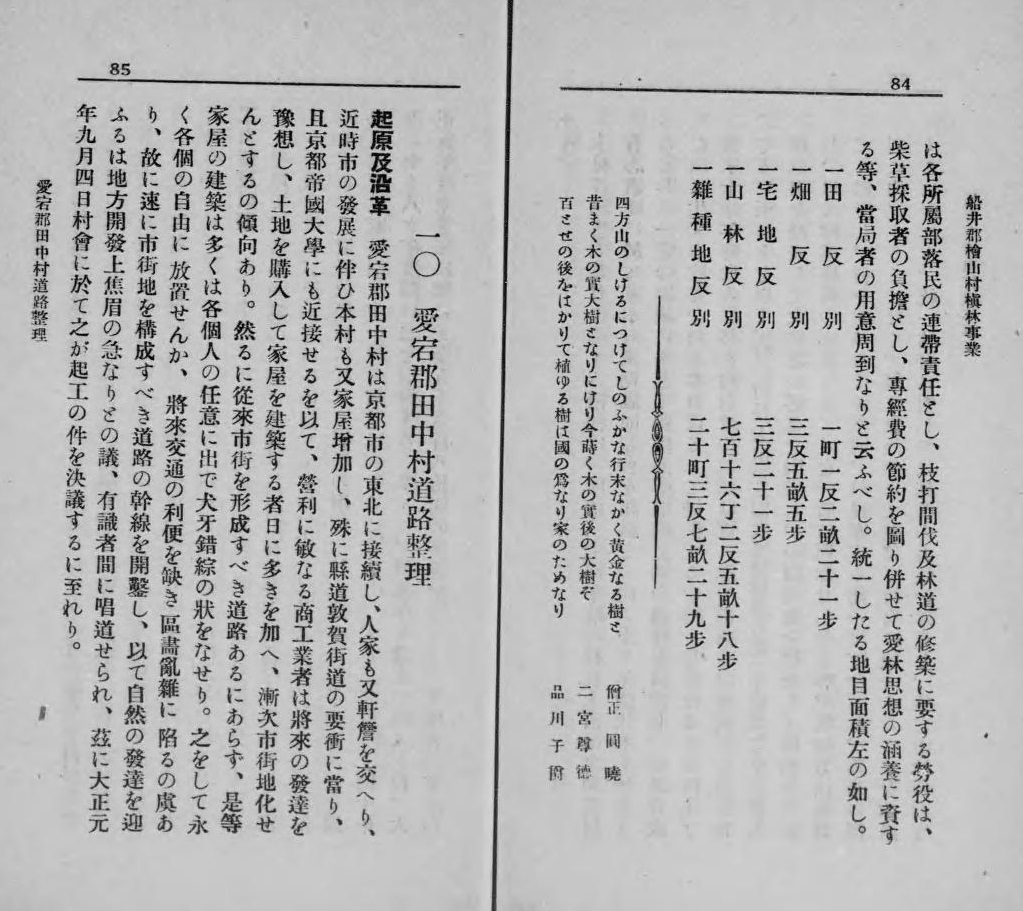 84
船井郡檜山村槇林事業
は各所屬部落民の連帶責任とし、枝打間伐及林道の修築に要する勞役は、
柴草採取者の負擔とし、專經費の節約を圖り併せて愛林思想の涵養に資す
る等、當局者の用意周到なりと云ふべし。統一したる地目面積左の如し。
一田反別 一町一反二畝二十一步
一畑反別 三反五畝五步
一宅地反別 三反二十一步
一山林反別 七百十六丁二反五畝十八步
一雜種地反別 二十町三反七畝二十九步
四方山のしけるにつけてしのふかな行末なかく黄金なる樹を 僧正
昔まく木の實大樹となりにけり今蒔く木の實後の大樹ぞ 二宮尊德
百とせの後をはかりて植ゆる樹は國の爲なり家のためなり 品川子爵
85
一〇 愛宕郡田中村道路整理
起原及沿革 愛宕郡田中村は京都市の東北に接續し、人家も又軒簷を交へり、
近時市の發展に伴ひ本村も又家屋增加し、殊に縣道敦賀街道の要衝に當り、
且京都帝國大學にも近接せるを以て、營利に敏なる商工業者は將來の發達を
豫想し、土地を購入して家屋を建築する者日に多きを加へ、漸次市街地化せ
んとするの傾向あり。然るに從來市街を形成すべき道路あるにあらず、是等
家屋の建築は多くは各個人の任意に出で犬牙錯綜の狀をなせり。之をして永
く各個の自由に放置せんか、將來交通の利便を缺き區畫亂雜に陷るの虞あ
り、故に速に市街地を構成すべき道路の幹線を開鑿し、以て自然の發達を迎
ふるは地方開發上焦眉の急なりとの議、有識者間に唱道せられ、玆に大正元
年九月四日村會に於て之が起工の件を決議するに至れり。
愛宕郡田中村道路整理